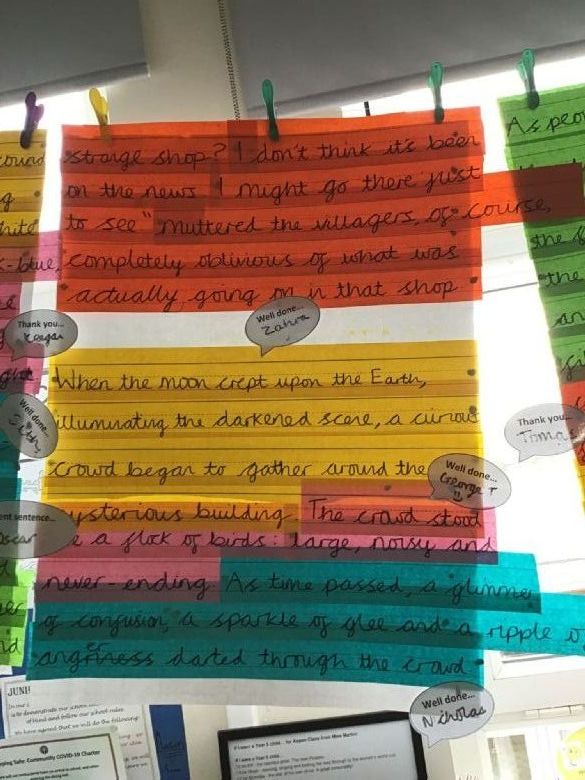 strange shop? I don't think it's been
on the news I might go there just
to see" muttered the villagers, of course,
completely oblivious of what was
actually going on in that shop
Well done...
Zahra
Thank you...
Keegan
When the moon crept upon the Earth,
illuminating the darkened scene, a curious
crowd began to gather around the
Well done...
George T
ysterious building. The crowd stood
e a flock of birds: large, noisy and
never-ending. As time passed, a glimmer
of confusion, a sparkle of glee and a ripple o
angriness darted through the crowd
Well done...
Nicholas
Well done...
ent sentence...
oscar
Thank you...
Tomas
As peo
the
the
an
ound
g
hite
s-blue,
JUNI!
to demonstrate our school
of Hand and follow our school rules.
have agreed that we will do the following:
ping Safe: Community COVID-19 Charter